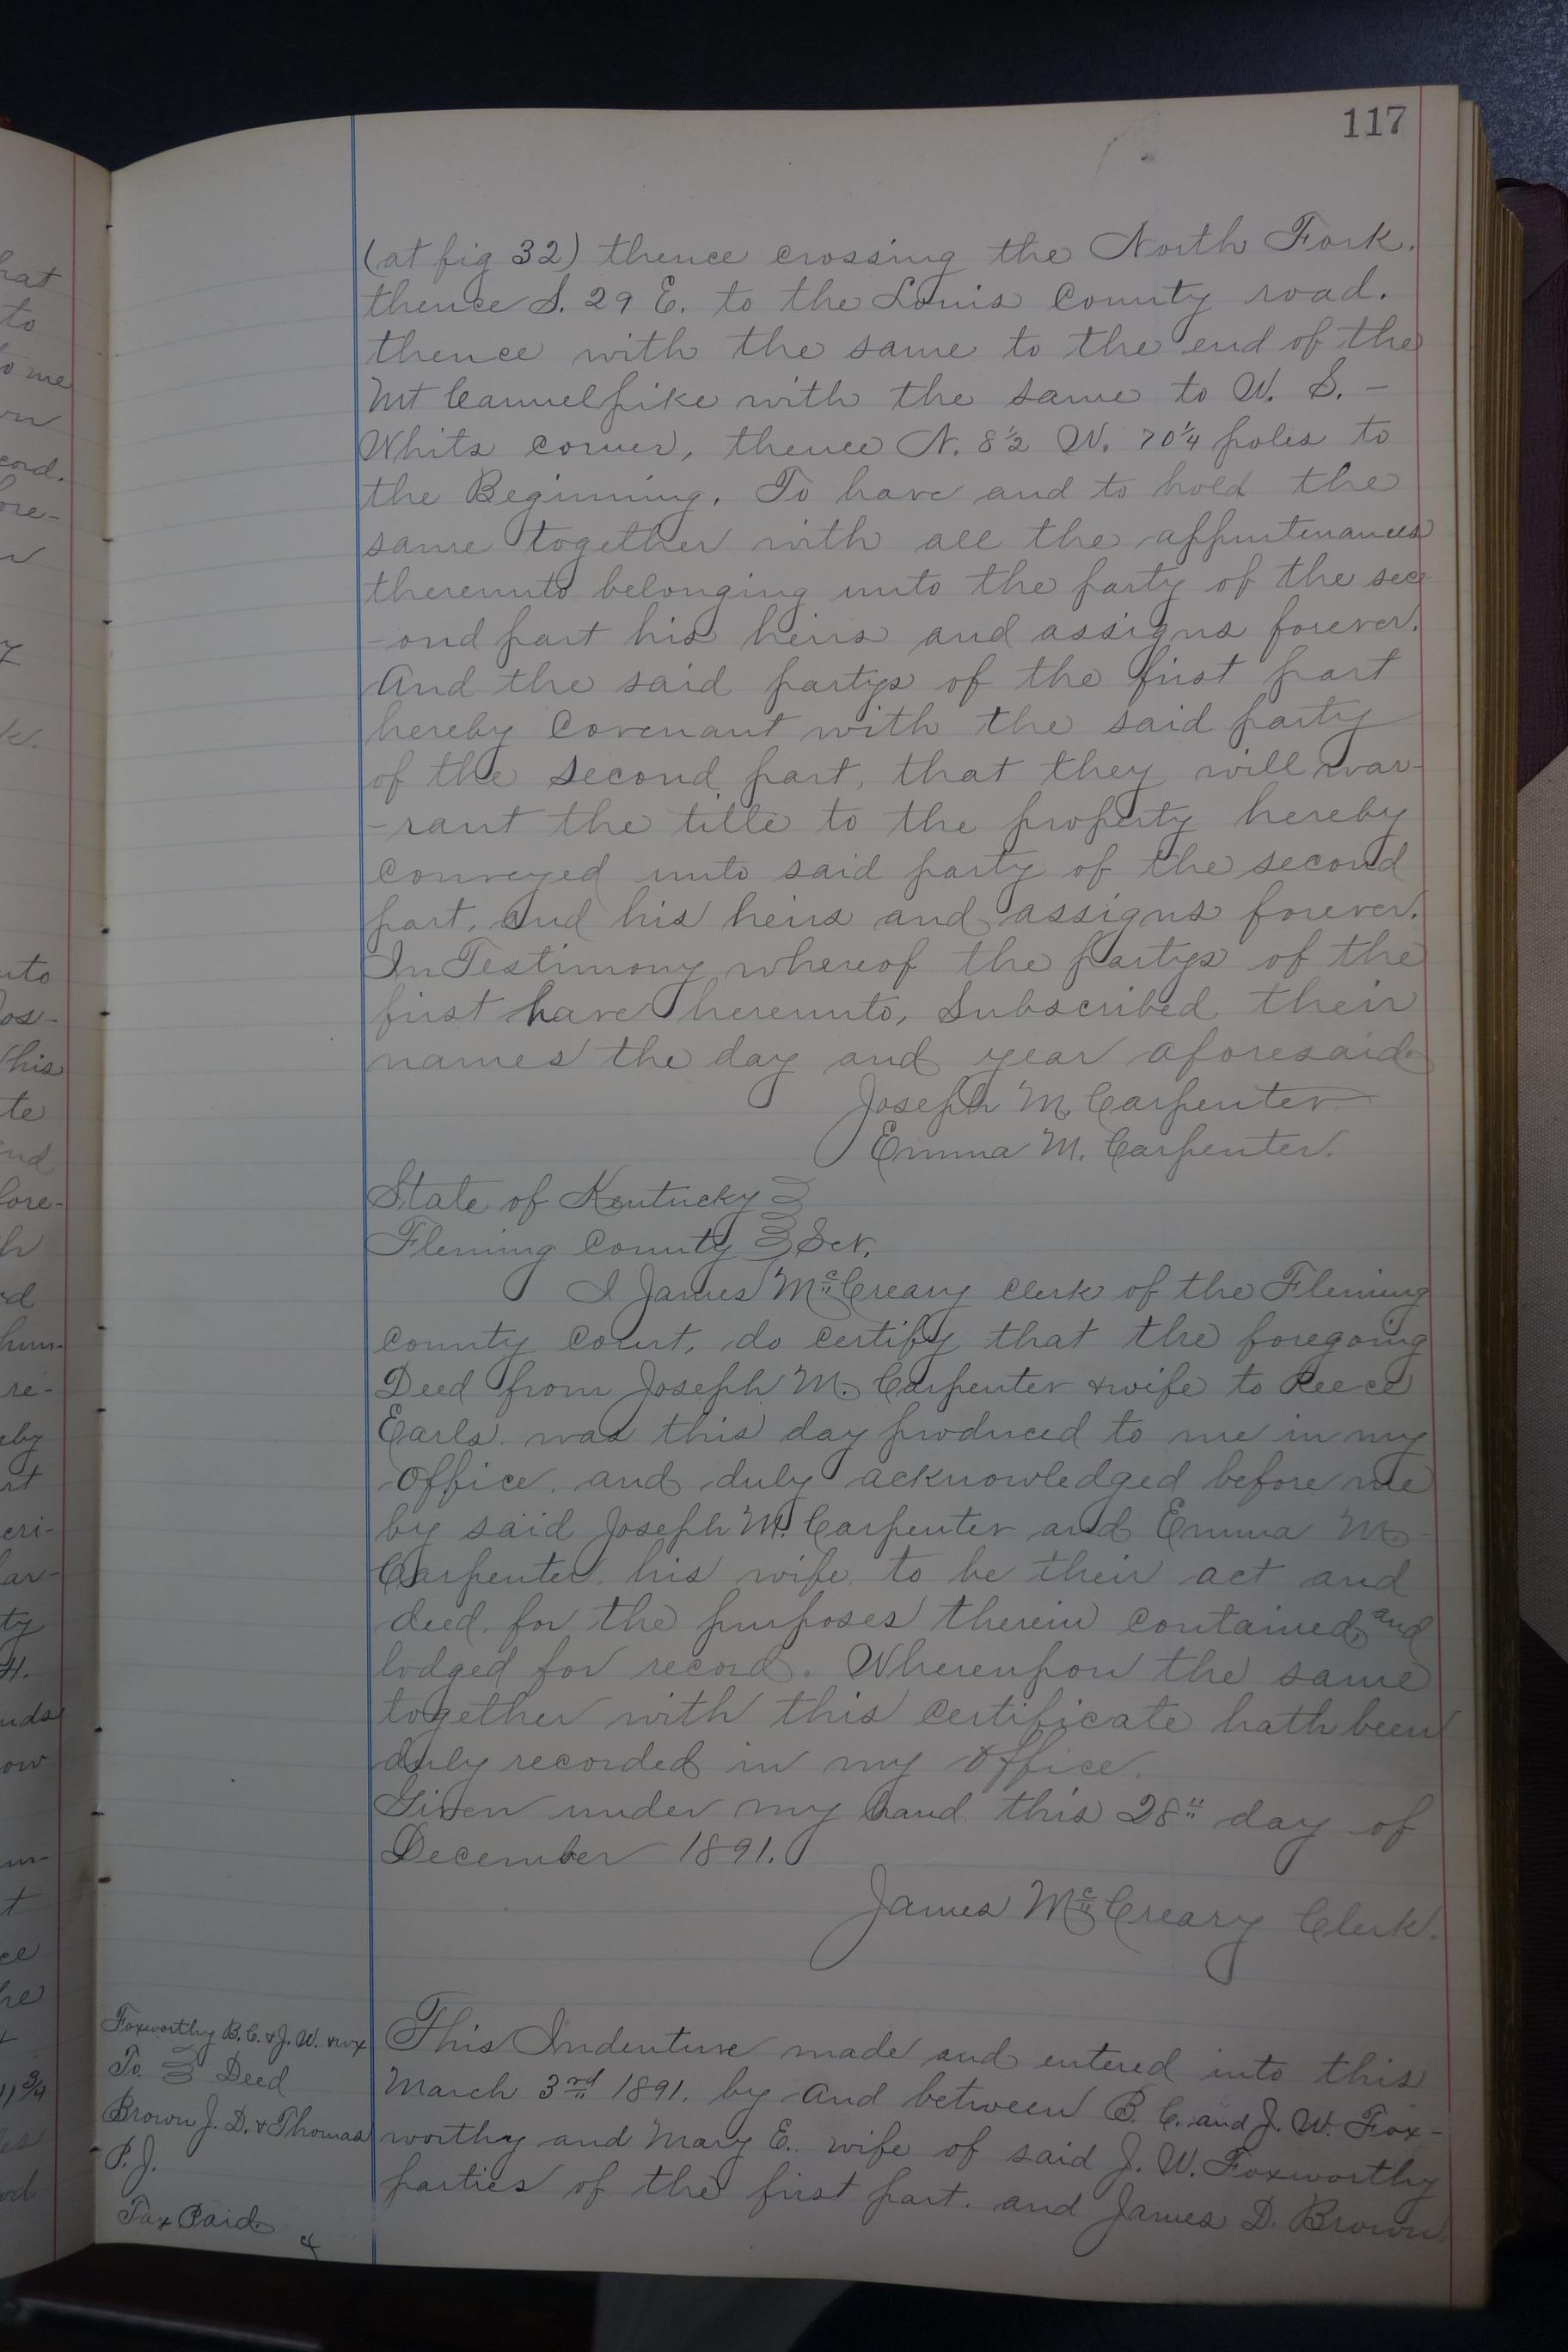 117
(at fig 32) thence crossing the North Fork.
thence S. 29 E. to the Louis County road.
thence with the same to the end of the
Mt Carmel pike with the same to W. S. -
Whits corner, thence N. 8½ W. 70¼ poles to
the Beginning. To have and to hold the
same together with all the appurtenances
thereunto belonging unto the party of the sec
-ond part his heirs and assigns forever.
And the said partys of the first part
hereby Covenant with the said party
of the second part, that they will war-
-rant the title to the property hereby
conveyed unto said party of the second
part, and his heirs and assigns forever.
In Testimony whereof the partys of the
first have hereunto, Subscribed their
names the day and year aforesaid
Joseph M. Carpenter
Emma M. Carpenter.
State of Kentucky }
Fleming County } Sct.
I James McCreary clerk of the Fleming
county Court, do certify that the foregoing
Deed from Joseph M. Carpenter & wife to Reece
Earls. was this day produced to me in my
Office. and duly acknowledged before me
by said Joseph M. Carpenter and Emma M.
Carpenter. his wife. to be their act and
deed. for the purposes therein contained, and
lodged for record. Whereupon the same
together with this certificate hath been
duly recorded in my office.
Given under my hand this 28" day of
December 1891.
James McCreary Clerk.
Foxworthy B. C. & J. W. & wx
To } Deed
Brown J. D. & Thomas
P. J.
Tax Paid
This Indenture made and entered into this
March 3rd 1891. by and between B. C. and J. W. Fox-
worthy and Mary E. wife of said J. W. Foxworthy
parties of the first part. and James D. Brown